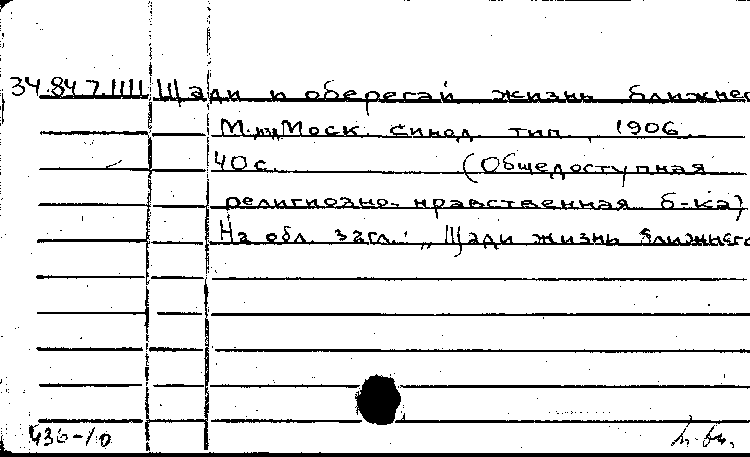 34.84.7.1111 Щади и оберегай жизнь ближнего
М., Моск. синод. тип., 1906.
40 с. (Общедоступная
религиозно-нравственная б-ка)
На обл. загл.: „Щади жизнь ближнего
436-10